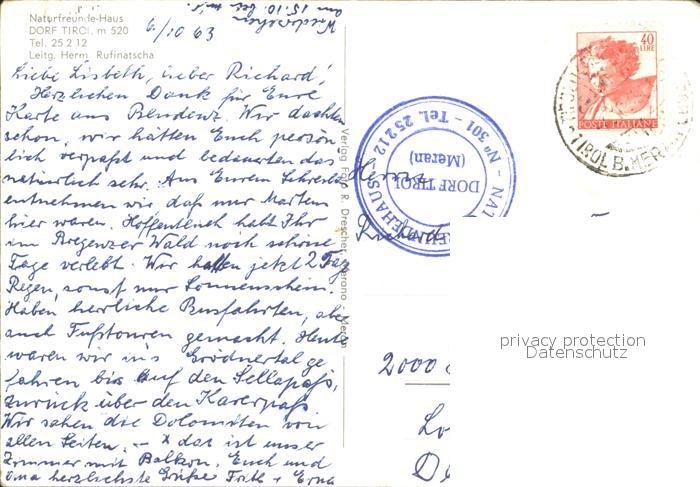 Naturfreunde-Haus
DORF TIROL m 520
Tel. 25 2 12
Leitg. Herm. Rufinatscha
6/10 63
Wiedersehen
am 15.10. bei
Liebe Lisbeth, lieber Richard!
Herzlichen Dank für Eure
Karte aus Bludenz. Wir dachten
schon, wir hätten Euch persön
lich verpasst und bedauerten das
natürlich sehr. Aus Eurem Schreiben
entnehmen wir daß nur Martens
hier waren. Hoffentlich habt Ihr
im Bregenzer Wald noch schöne
Tage verlebt. Wir hatten jetzt 2 Tag
Regen, sonst nur Sonnenschein.
Haben herrliche Busfahrten, aber
auch Fußtouren gemacht. Heute
waren wir ins Grödnertal ge
fahren bis auf den Sellapaß,
zurück über den Karerpaß.
Wir sahen die Dolomiten von
allen Seiten. – x das ist unser
Zimmer mit Balkon. Euch und
Oma herzlichste Grüße Frith + Erna
Verlag Foto R. Drescher, Merano - Meran
40
LIRE
POSTE ITALIANE
TIROL B. MERAN
DORF TIROL
(Meran)
Nº 301 - Tel. 25212
Herrn
Richard
2000
privacy protection
Datenschutz